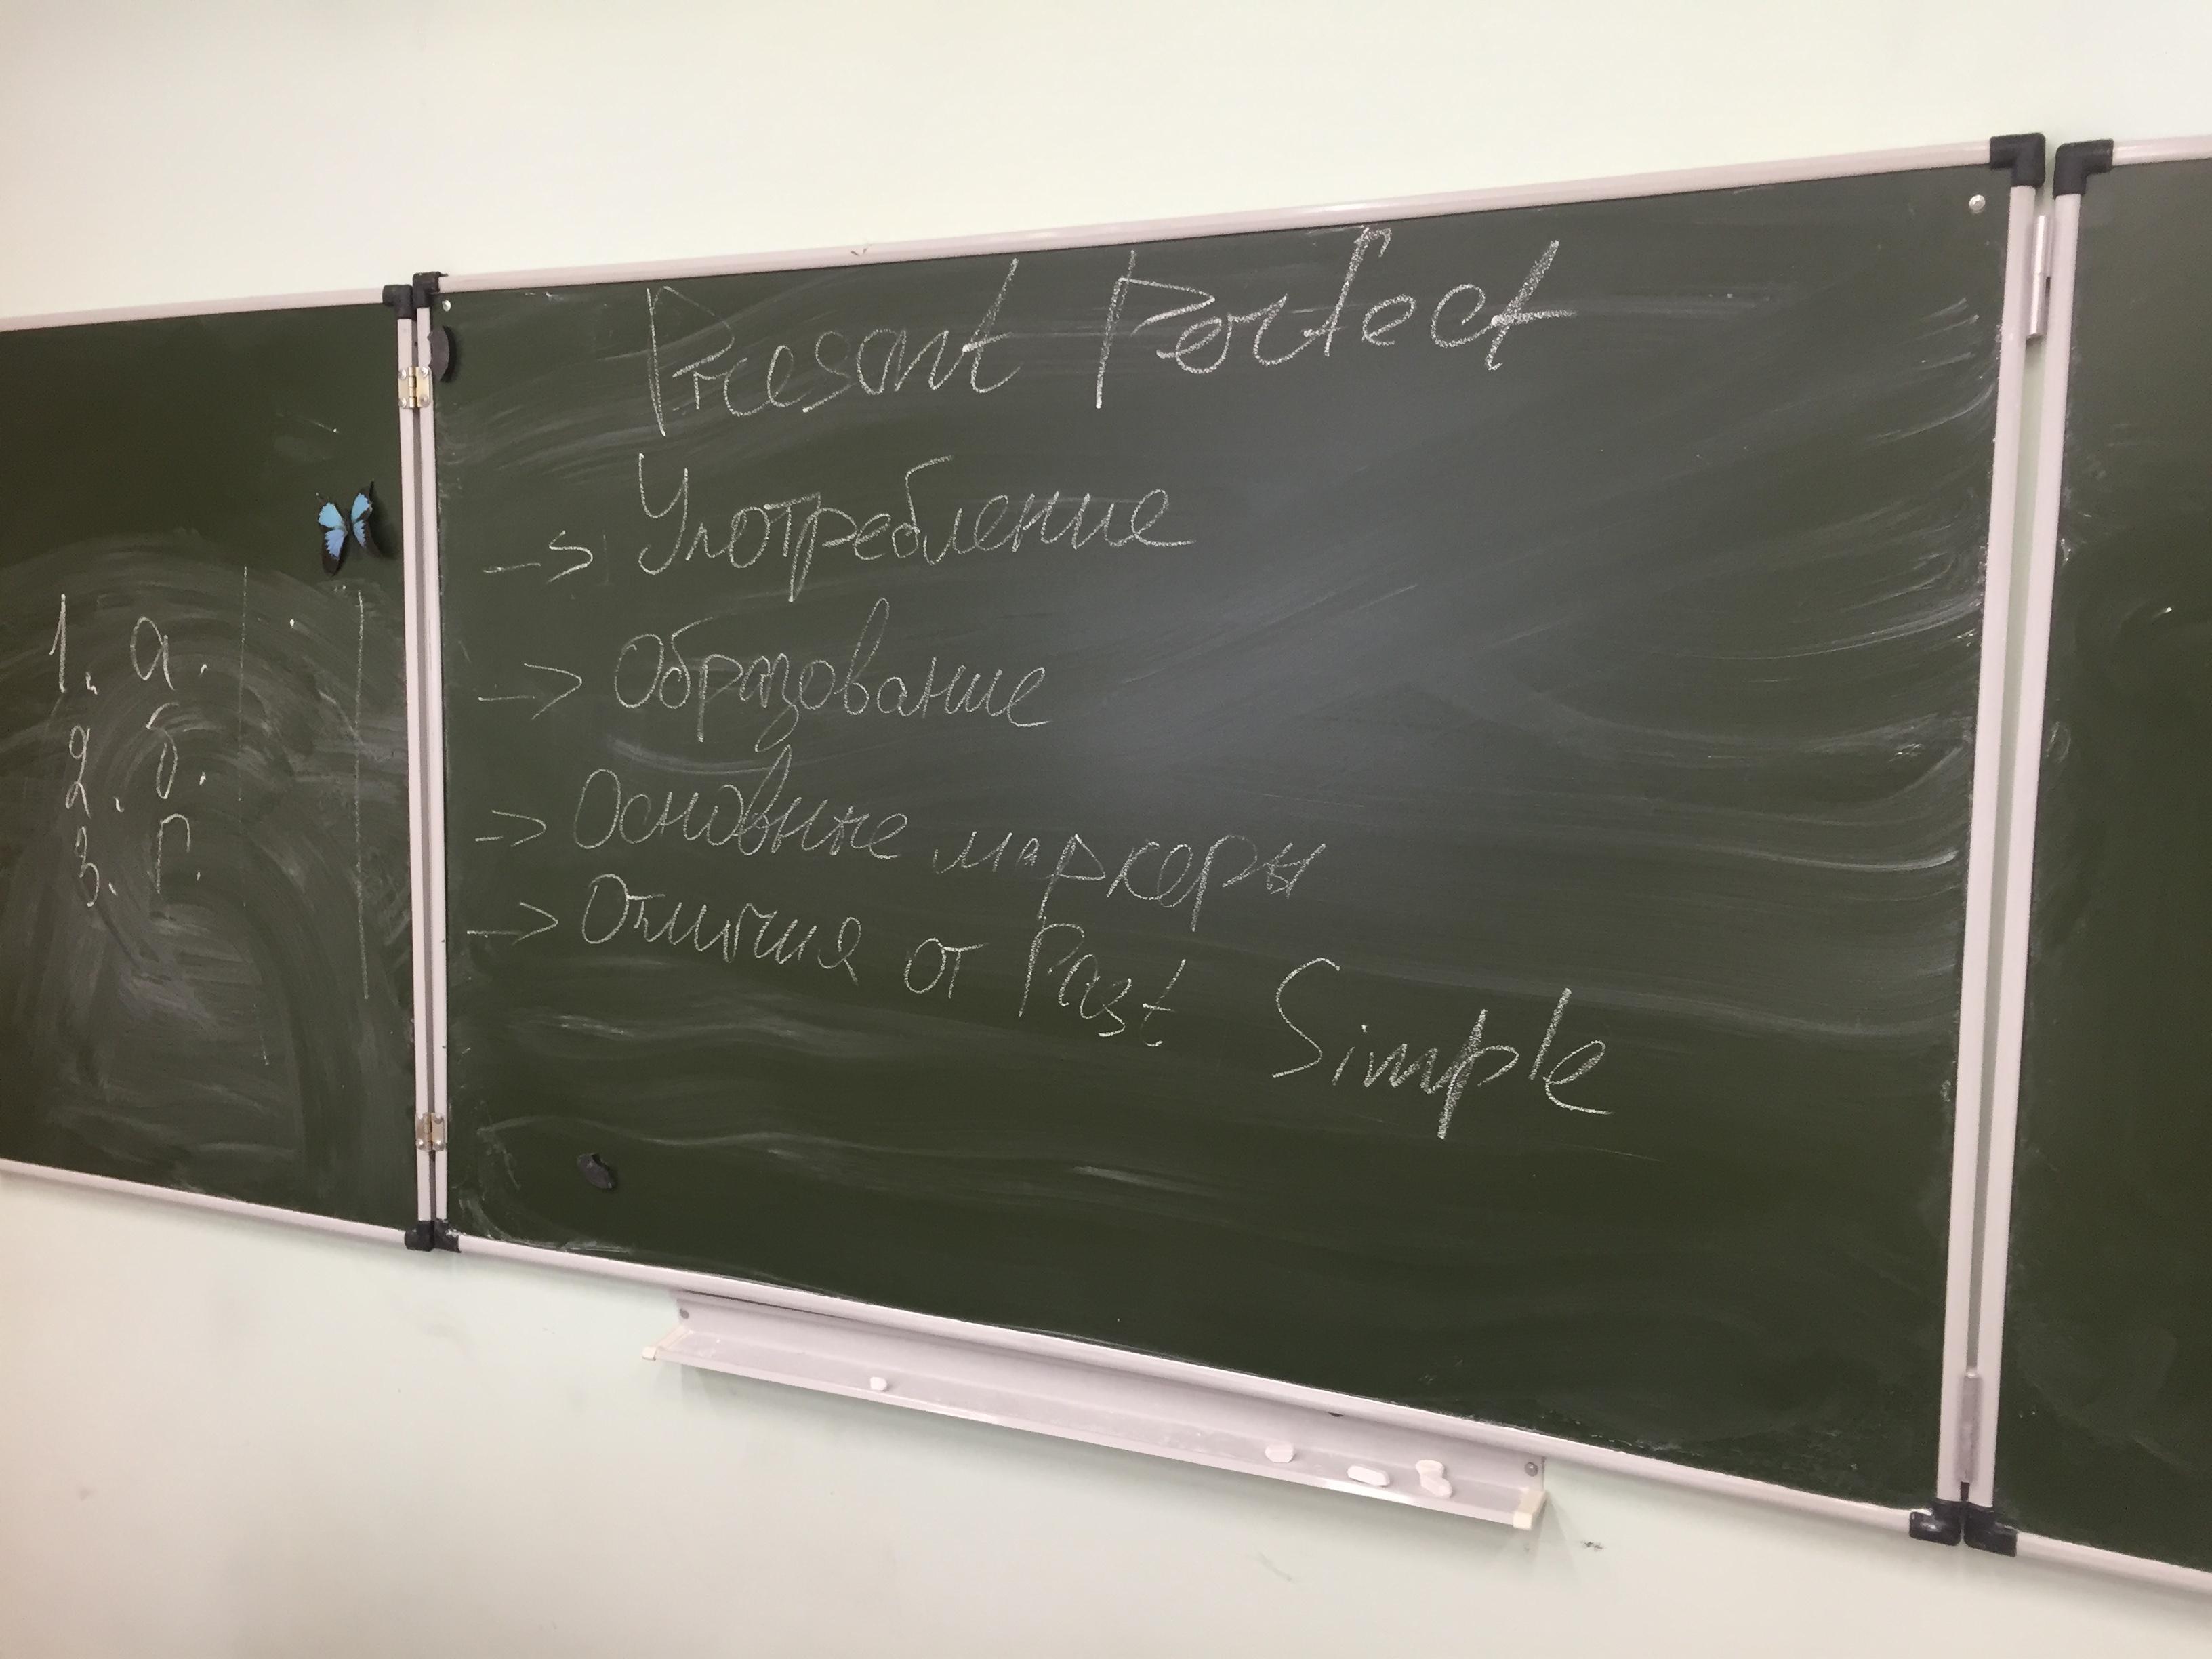 1. а.
2. б.
3. г.
Present Perfect
-> Употребление
-> Образование
-> Основные маркеры
-> Отличия от Past Simple